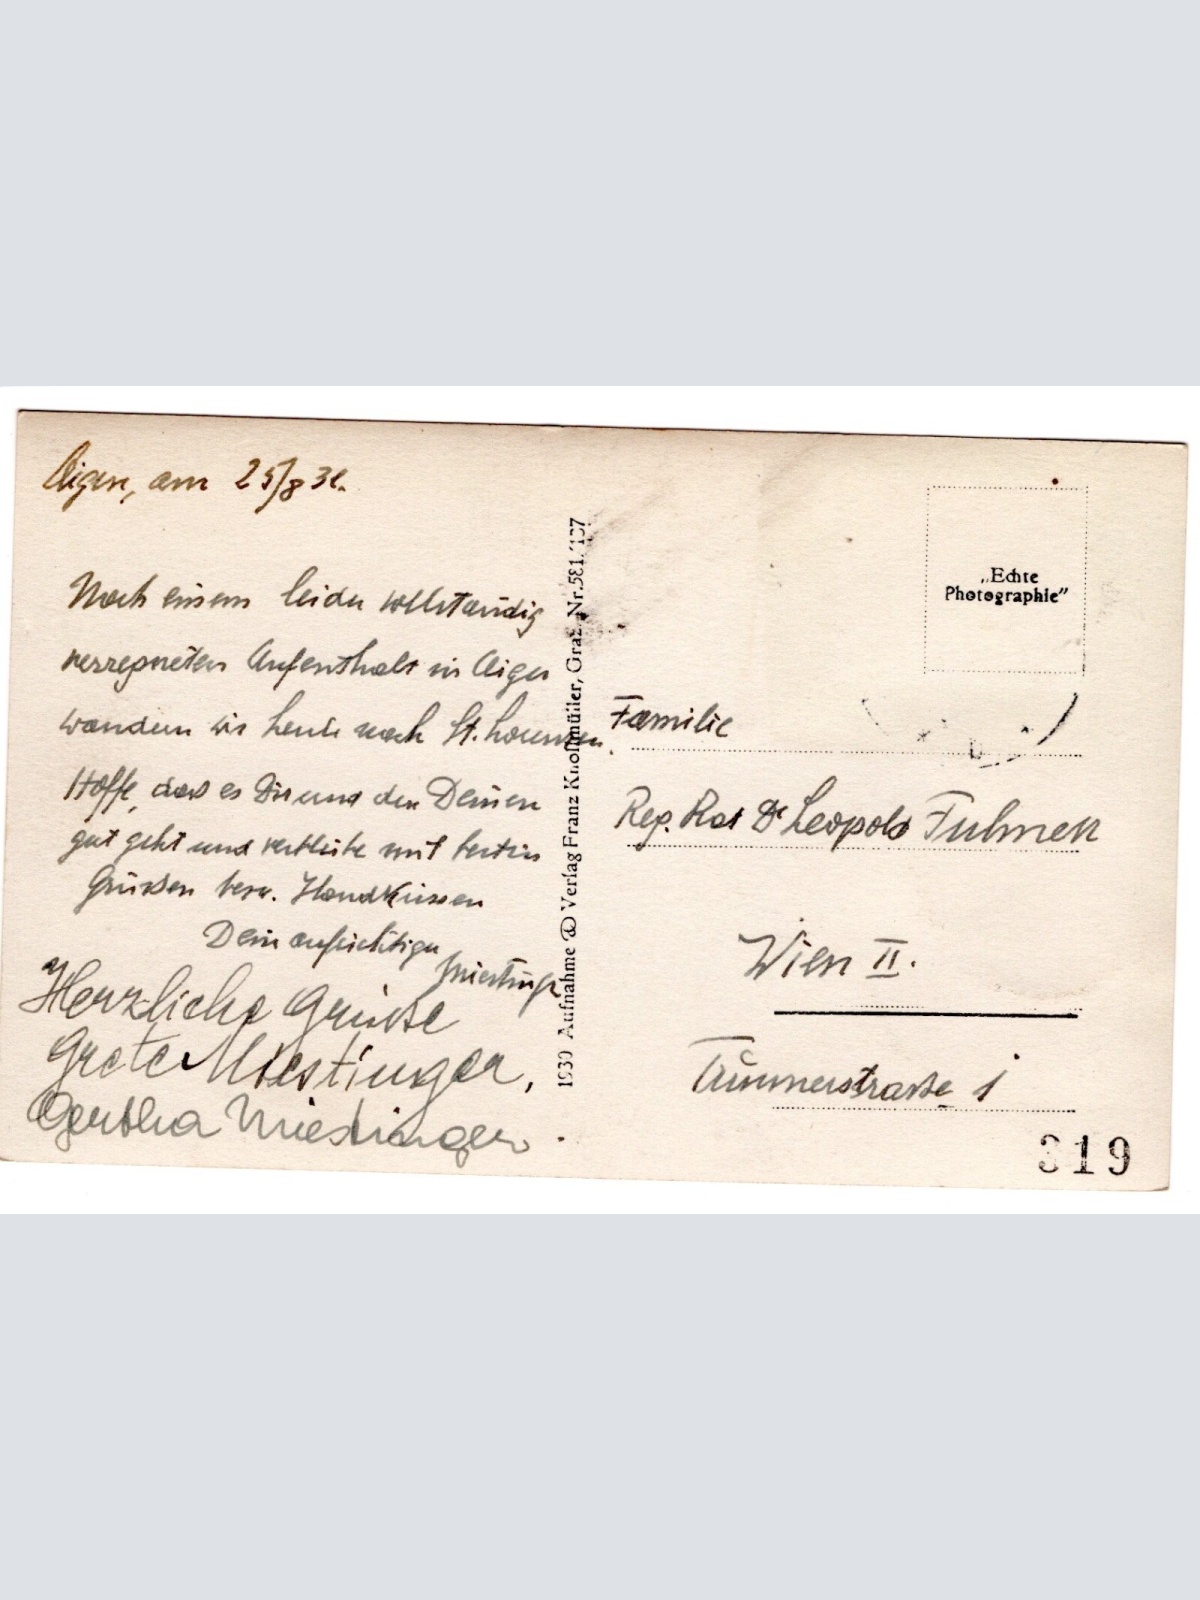 Aigen, am 25/8 31.
Nach einem leider vollständig
verregneten Aufenthalt in Aigen
wandern wir heute nach St.
Hoffe, dass es Dir und den Deinen
gut geht und verbleibe mit besten
Grüßen bezw. Handküssen
Dein aufrichtiger
Miestinger
Herzliche Grüße
Grete Miestinger,
Gertha Miestinger.
1930 Aufnahme & Verlag Franz Knollmüller, Graz Nr. 581/137
„Echte
Photographie"
Familie
Reg. Rat Dr Leopold Fulmek
Wien II.
1
319